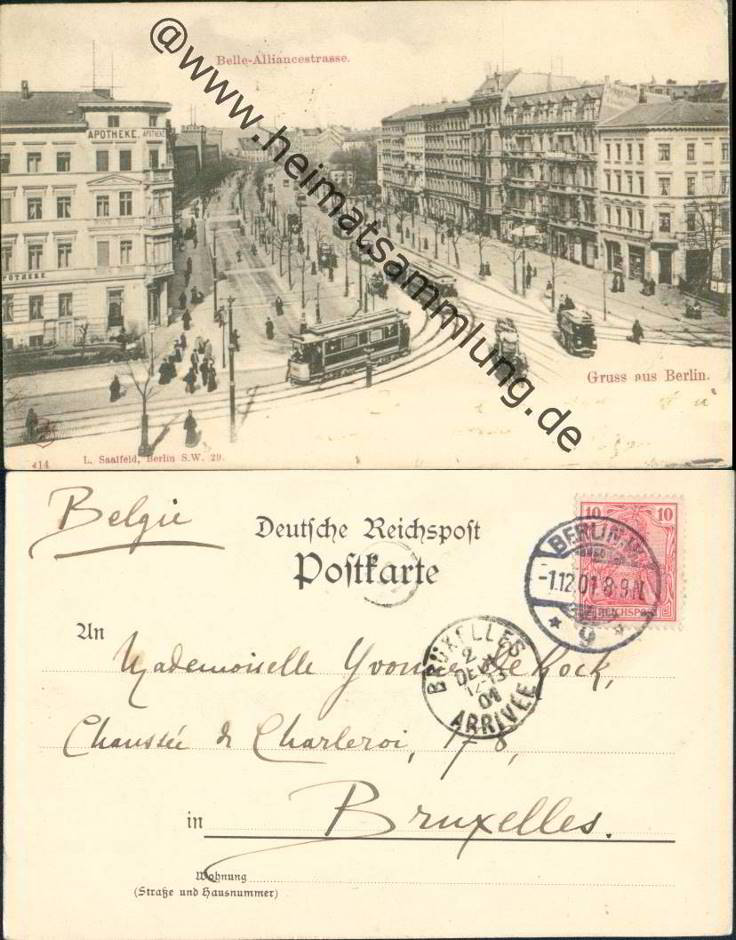 @www.heimatsammlung.de
Belle-Alliancestrasse.
APOTHEKE. APOTHEKE
APOTHEKE
Gruss aus Berlin.
414 L. Saalfeld, Berlin S.W. 29.
Belgie
Deutsche Reichspost
Postkarte
10 10
REICHSPOST
BERLIN W.
-1.12.01. 8-9N.
* 9 *
BRUXELLES
2
DEC
12-13
01
ARRIVÉE
An Mademoiselle Yvonne
Chaussée de Charleroi,
in Bruxelles.
Wohnung
(Straße und Hausnummer)